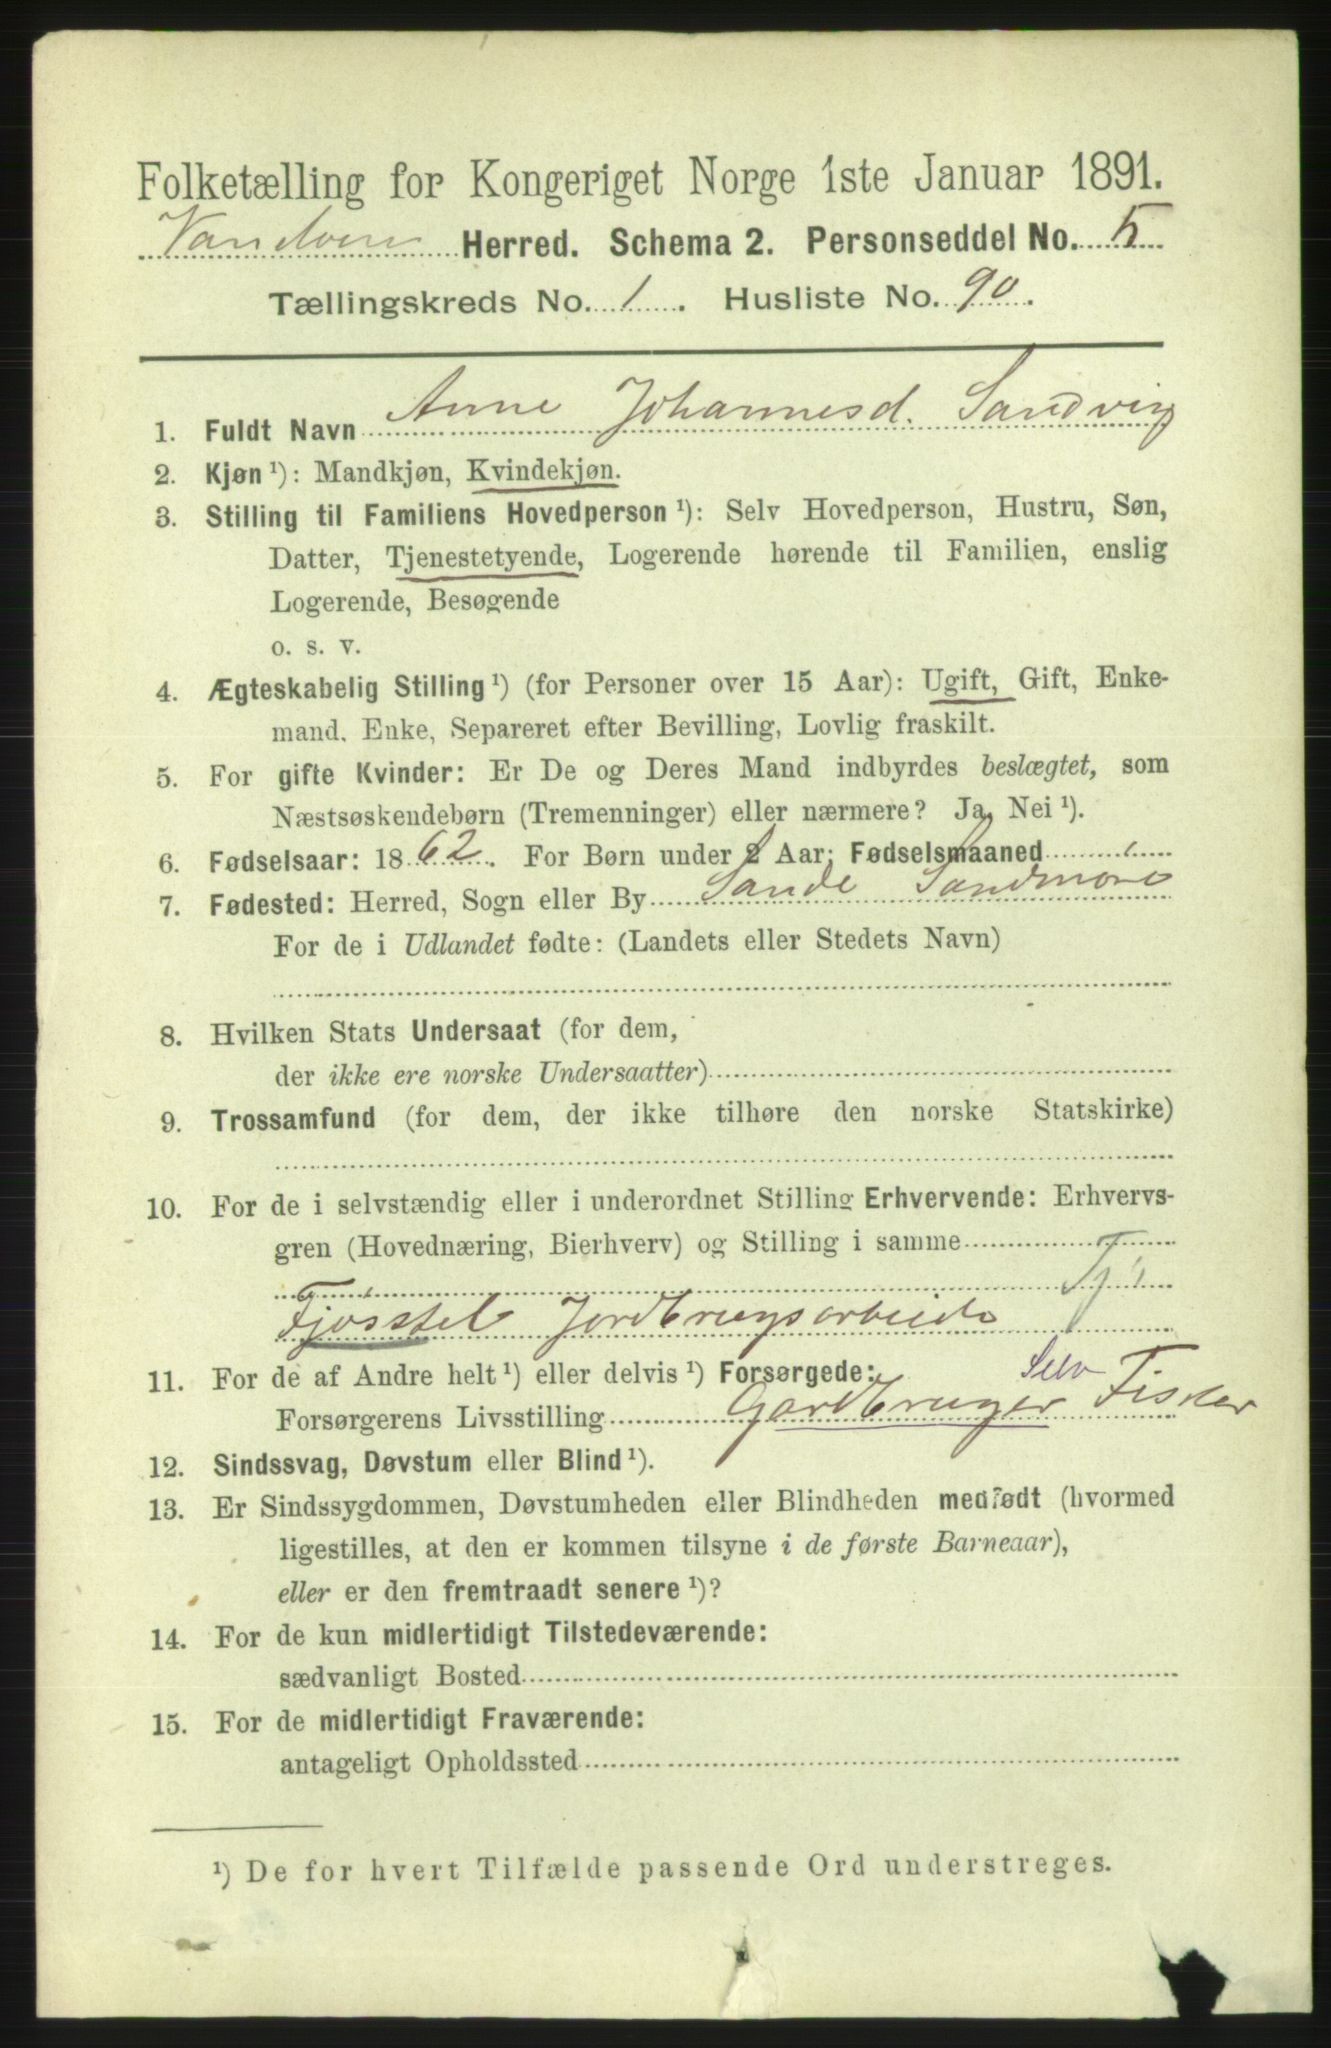 Folketælling for Kongeriget Norge 1ste Januar 1891.
Vanelven Herred. Schema 2. Personseddel No. 5
Tællingskreds No. 1. Husliste No. 90.
1. Fuldt Navn Anne Johannesd. Sandvig
2. Kjøn ¹): Mandkjøn, Kvindekjøn.
3. Stilling til Familiens Hovedperson ¹): Selv Hovedperson, Hustru, Søn,
Datter, Tjenestetyende, Logerende hørende til Familien, enslig
Logerende, Besøgende
o. s. v.
4. Ægteskabelig Stilling ¹) (for Personer over 15 Aar): Ugift, Gift, Enke-
mand, Enke, Separeret efter Bevilling, Lovlig fraskilt.
5. For gifte Kvinder: Er De og Deres Mand indbyrdes beslægtet, som
Næstsøskendebørn (Tremenninger) eller nærmere? Ja, Nei ¹).
6. Fødselsaar: 1862. For Børn under 2 Aar: Fødselsmaaned
7. Fødested: Herred, Sogn eller By Sande Søndmøre
For de i Udlandet fødte: (Landets eller Stedets Navn)
8. Hvilken Stats Undersaat (for dem,
der ikke ere norske Undersaatter)
9. Trossamfund (for dem, der ikke tilhøre den norske Statskirke)
10. For de i selvstændig eller i underordnet Stilling Erhvervende: Erhvervs-
gren (Hovednæring, Bierhverv) og Stilling i samme
Tj
Fjøsstel Jordbrugsarbeide
11. For de af Andre helt ¹) eller delvis ¹) Forsørgede:
Selv
Forsørgerens Livsstilling Gardbruger Fisker
12. Sindssvag, Døvstum eller Blind ¹).
13. Er Sindssygdommen, Døvstumheden eller Blindheden medfødt (hvormed
ligestilles, at den er kommen tilsyne i de første Barneaar),
eller er den fremtraadt senere ¹)?
14. For de kun midlertidigt Tilstedeværende:
sædvanligt Bosted
15. For de midlertidigt Fraværende:
antageligt Opholdssted
¹) De for hvert Tilfælde passende Ord understreges.